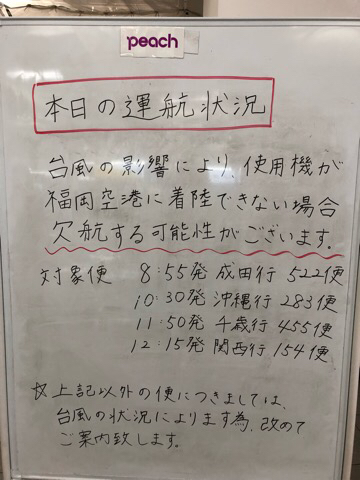 peach
本日の運航状況
台風の影響により、使用機が
福岡空港に着陸できない場合
欠航する可能性がございます。
対象便 8:55発 成田行 522便
10:30発 沖縄行 283便
11:50発 千歳行 455便
12:15発 関西行 154便
※上記以外の便につきましては、
台風の状況によります為、改めて
ご案内致します。